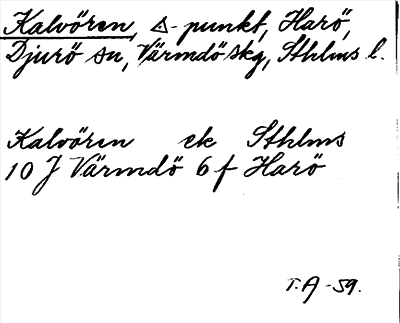 Kalvören, △-punkt, Harö,
Djurö sn, Värmdö skg, Sthlms l.
Kalvören ek Sthlms
10 J Värmdö 6 f Harö
T.A-59.